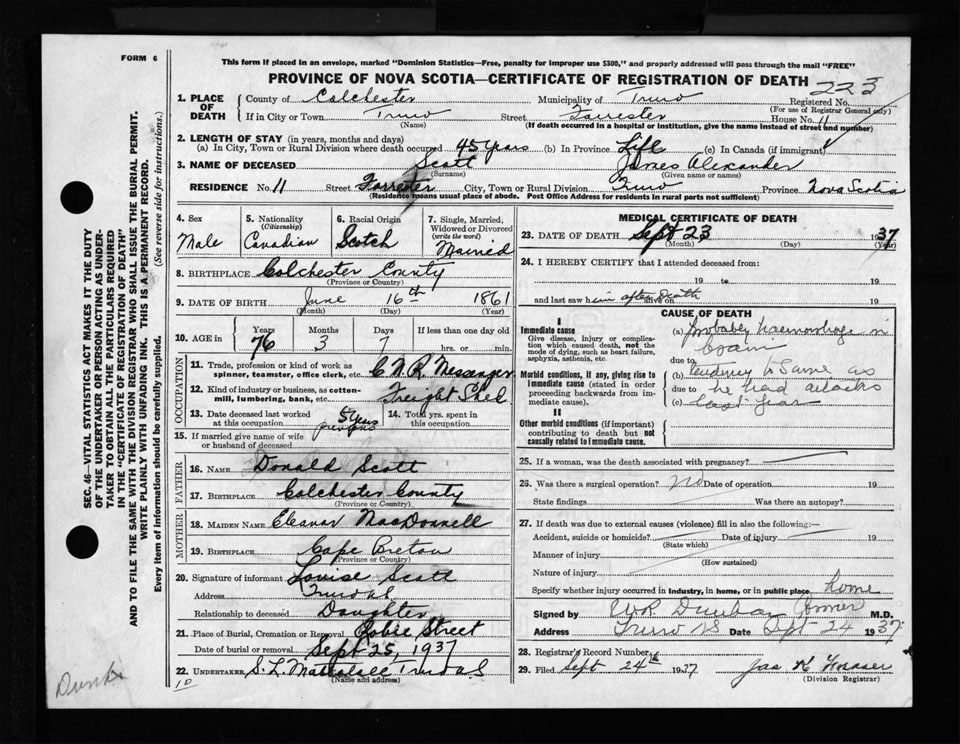 FORM 6
This form if placed in an envelope, marked "Dominion Statistics—Free, penalty for improper use $300," and properly addressed will pass through the mail "FREE"
PROVINCE OF NOVA SCOTIA—CERTIFICATE OF REGISTRATION OF DEATH
223
1. PLACE OF DEATH
County of Colchester Municipality of Truro Registered No.
(For use of Registrar General only)
If in City or Town Truro Street Forrester House No. 11
(Name) (If death occurred in a hospital or institution, give the name instead of street and number)
2. LENGTH OF STAY (in years, months and days)
(a) In City, Town or Rural Division where death occurred 45 years (b) In Province Life (c) In Canada (if immigrant)
3. NAME OF DECEASED Scott James Alexander
(Surname) (Given name or names)
RESIDENCE No. 11 Street Forrester City, Town or Rural Division Truro Province Nova Scotia
(Residence means usual place of abode. Post Office Address for residents in rural parts not sufficient)
4. Sex
Male
5. Nationality
(Citizenship)
Canadian
6. Racial Origin
Scotch
7. Single, Married, Widowed or Divorced
(write the word)
Married
8. BIRTHPLACE Colchester County
(Province or Country)
9. DATE OF BIRTH June 16th 1861
(Month) (Day) (Year)
10. AGE in
Years Months Days If less than one day old
76 3 7 hrs. or min.
OCCUPATION
11. Trade, profession or kind of work as spinner, teamster, office clerk, etc. C.N.R. Messenger
12. Kind of industry or business, as cotton-mill, lumbering, bank, etc. Freight Shed
13. Date deceased last worked at this occupation 5 years previous
14. Total yrs. spent in this occupation
15. If married give name of wife or husband of deceased
FATHER
16. NAME Donald Scott
17. BIRTHPLACE Colchester County
(Province or Country)
MOTHER
18. MAIDEN NAME Eleanor MacDonnell
19. BIRTHPLACE Cape Breton
(Province or Country)
20. Signature of informant Louise Scott
Address Truro N.S.
Relationship to deceased Daughter
21. Place of Burial, Cremation or Removal Robie Street
Date of burial or removal Sept 25, 1937
22. UNDERTAKER S. L. Truro N.S
(Name and address)
MEDICAL CERTIFICATE OF DEATH
23. DATE OF DEATH Sept 23 1937
(Month) (Day) (Year)
24. I HEREBY CERTIFY that I attended deceased from:
19 to 19
and last saw him after death alive on 19
CAUSE OF DEATH
I
Immediate cause
Give disease, injury or complication which caused death, not the mode of dying, such as heart failure, asphyxia, asthenia, etc.
(a) probably haemorrhage in brain
due to
Morbid conditions, if any, giving rise to immediate cause (stated in order proceeding backwards from immediate cause).
(b) tendency to same as
due to he had attacks
(c) last year
II
Other morbid conditions (if important) contributing to death but not causally related to immediate cause.
25. If a woman, was the death associated with pregnancy?
26. Was there a surgical operation? no Date of operation 19
State findings Was there an autopsy?
27. If death was due to external causes (violence) fill in also the following:—
Accident, suicide or homicide? Date of injury 19
(State which)
Manner of injury
(How sustained)
Nature of injury
Specify whether injury occurred in industry, in home, or in public place home
Signed by W R Dunbar Coroner M.D.
Address Truro NS Date Sept 24 1937
28. Registrar's Record Number
29. Filed Sept 24th 1937 Jas
(Division Registrar)
SEC. 46—VITAL STATISTICS ACT MAKES IT THE DUTY
OF THE UNDERTAKER OR PERSON ACTING AS UNDER-
TAKER TO OBTAIN ALL THE PARTICULARS REQUIRED
IN THE "CERTIFICATE OF REGISTRATION OF DEATH"
AND TO FILE THE SAME WITH THE DIVISION REGISTRAR WHO SHALL ISSUE THE BURIAL PERMIT.
WRITE PLAINLY WITH UNFADING INK. THIS IS A PERMANENT RECORD.
Every item of information should be carefully supplied. (See reverse side for instructions.)